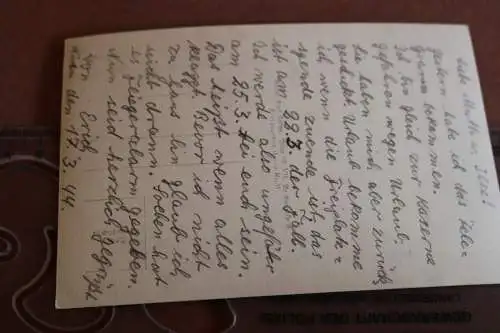 Liebe Mutter u. Ilse!
Gestern habe ich das Tele-
gramm bekommen.
Ich bin gleich zur Kaserne
gefahren wegen Urlaub.
Die haben mich aber zurück
geschickt. Urlaub bekomme
ich, wenn die
zuende ist, das
ist am 22.3. der Fall.
Ich werde also ungefähr
am 25.3. bei euch sein.
Das heißt wenn alles
klappt. Bevor ich nicht
zu Haus bin glaub ich
nicht dran. Soeben hat
es Fliegeralarm gegeben.
Nun seid herzlich gegrüßt
von Erich
den 17.3.44.
GEWERKSCHAFT DER POLIZEI